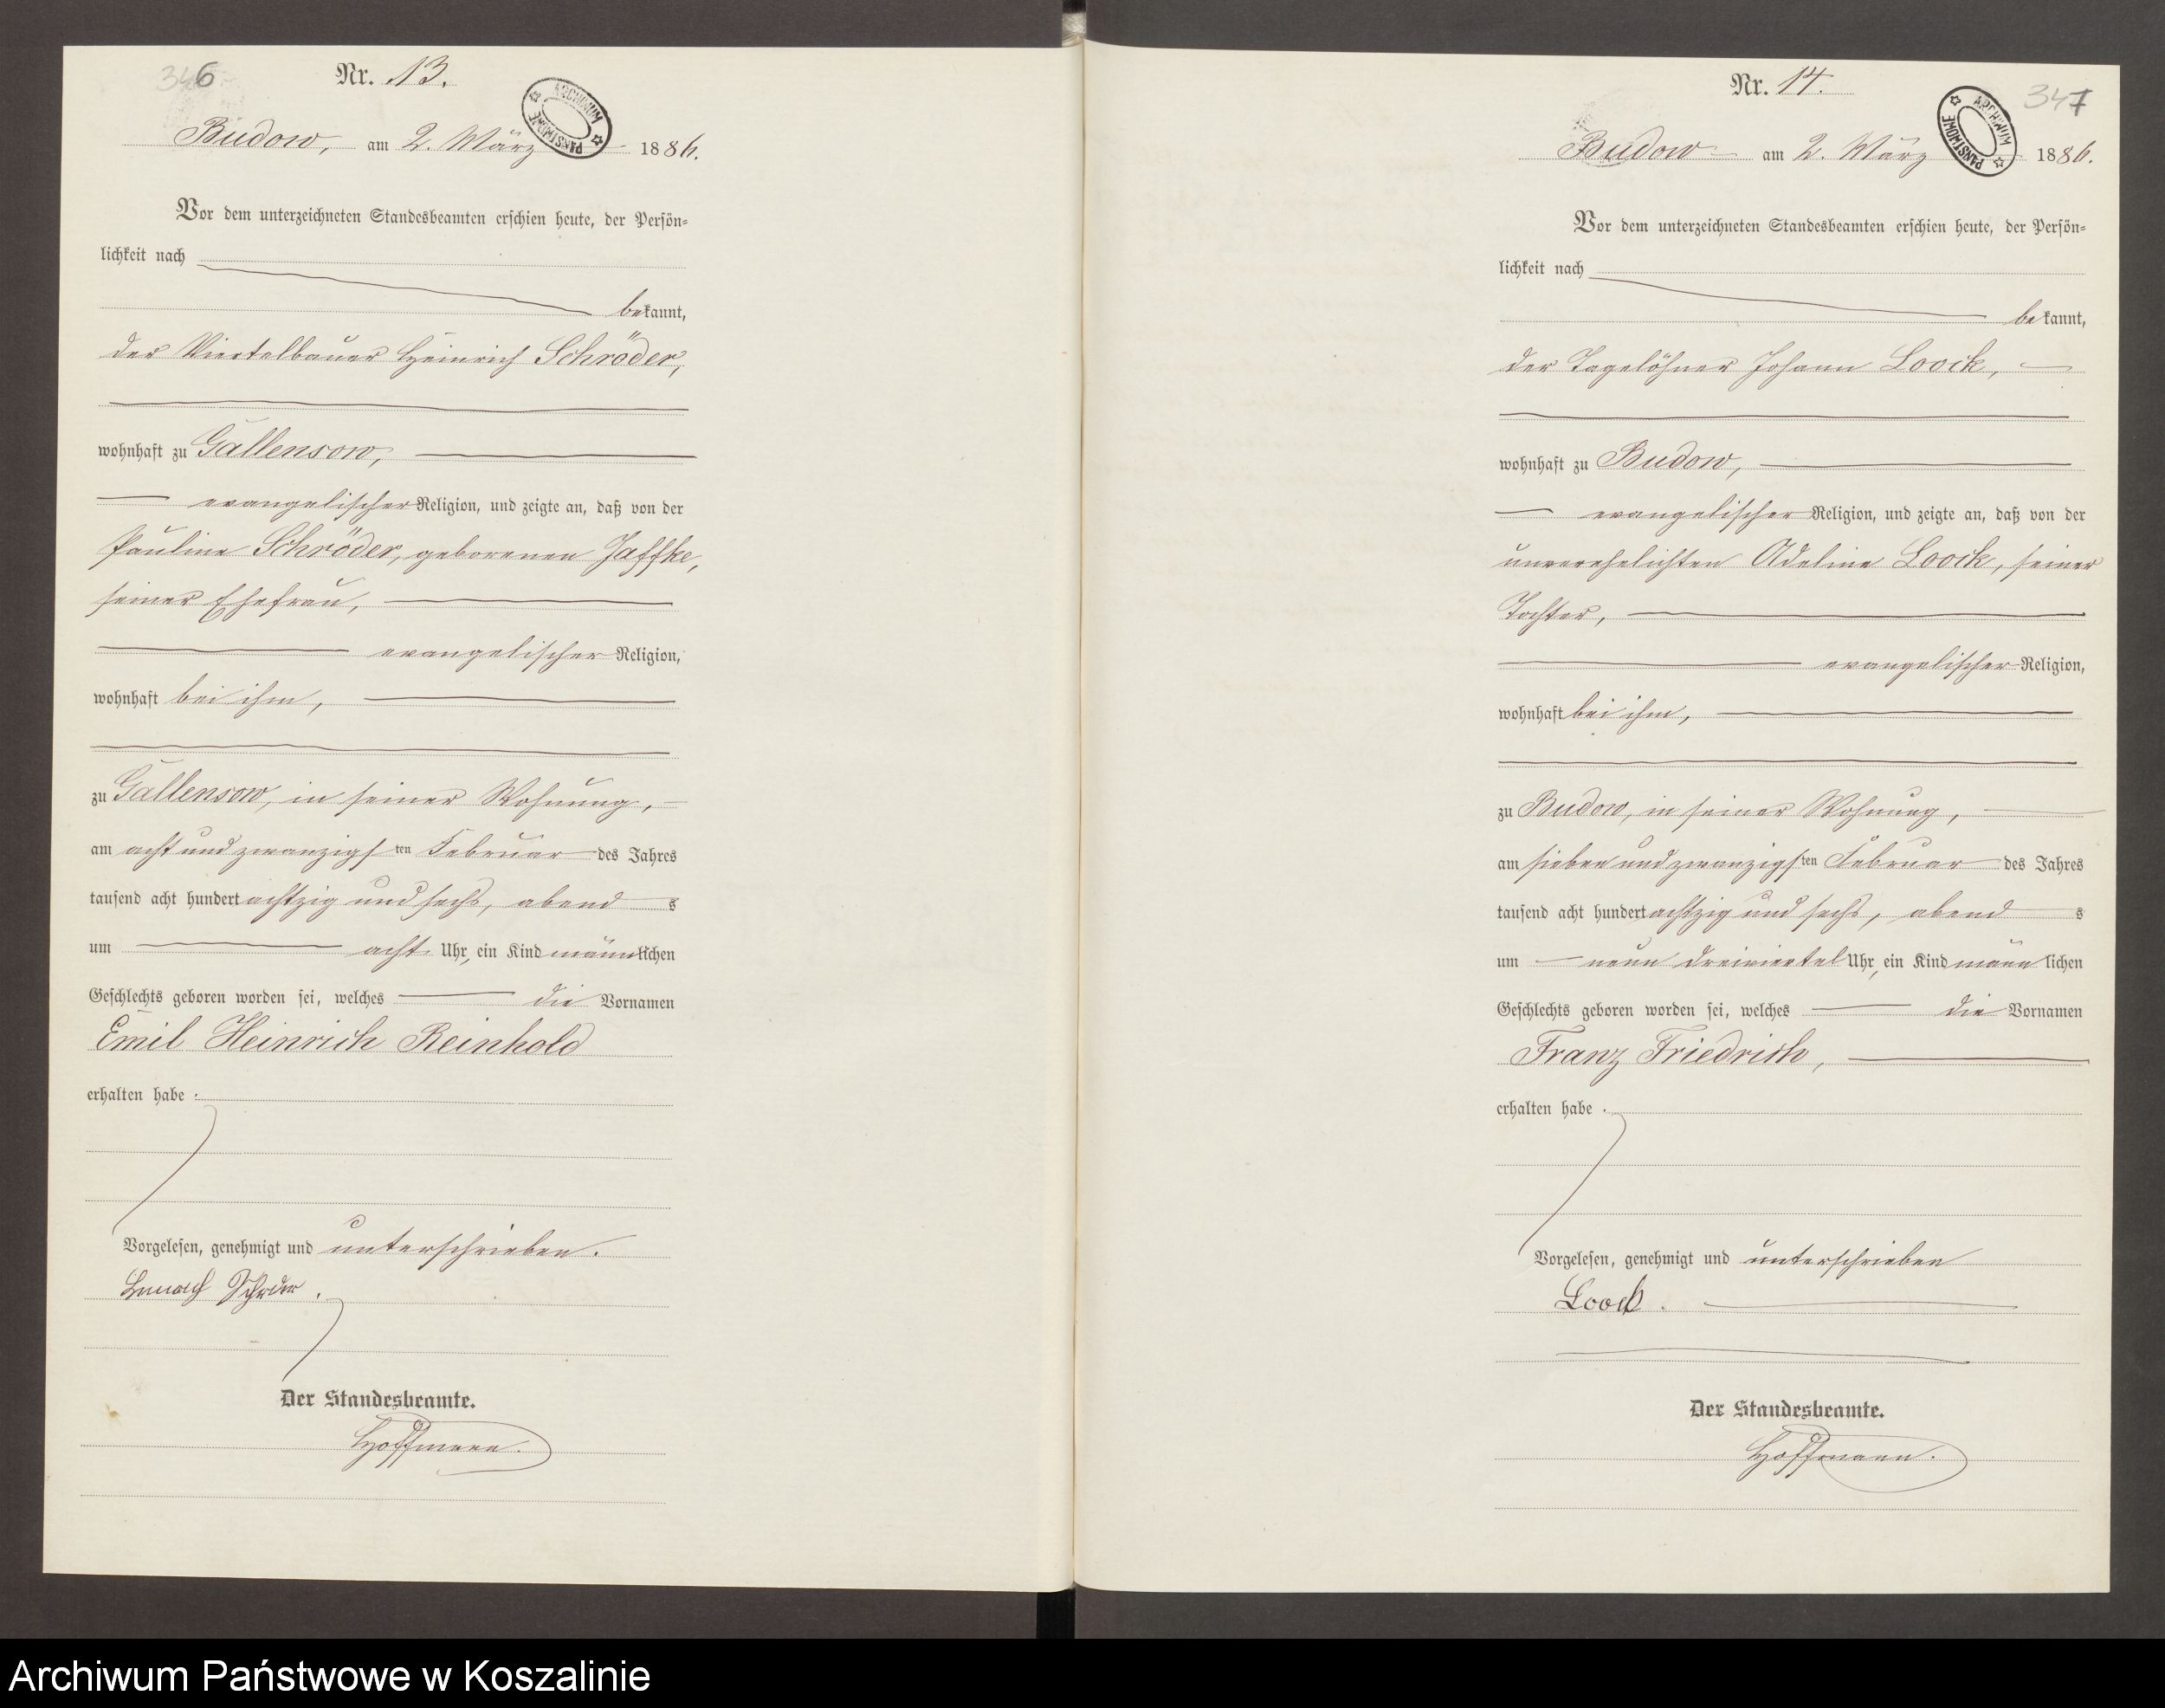 346
Nr. 13.
ARCHIWUM PAŃSTWOWE
Budow, am 2. März 1886.
Vor dem unterzeichneten Standesbeamten erschien heute, der Persön-
lichkeit nach
bekannt,
der Viertelbauer Heinrich Schröder,
wohnhaft zu Gallensow,
evangelischer Religion, und zeigte an, daß von der
Pauline Schröder, geborenen Jaffke,
seiner Ehefrau,
evangelischer Religion,
wohnhaft bei ihm,
zu Gallensow, in seiner Wohnung,
am acht und zwanzigsten Februar des Jahres
tausend acht hundert achtzig und sechs, abends
um acht Uhr, ein Kind männlichen
Geschlechts geboren worden sei, welches die Vornamen
Emil Heinrich Reinhold
erhalten habe.
Vorgelesen, genehmigt und unterschrieben.
Der Standesbeamte.
Hoffmann.
347
Nr. 14.
ARCHIWUM PAŃSTWOWE
Budow am 2. März 1886.
Vor dem unterzeichneten Standesbeamten erschien heute, der Persön-
lichkeit nach
bekannt,
der Tagelöhner Johann Loock,
wohnhaft zu Budow,
evangelischer Religion, und zeigte an, daß von der
unverehelichten Adeline Loock, seiner
Tochter,
evangelischer Religion,
wohnhaft bei ihm,
zu Budow, in seiner Wohnung,
am sieben und zwanzigsten Februar des Jahres
tausend acht hundert achtzig und sechs, abends
um neun dreiviertel Uhr, ein Kind männlichen
Geschlechts geboren worden sei, welches die Vornamen
Franz Friedrich,
erhalten habe.
Vorgelesen, genehmigt und unterschrieben
Loock.
Der Standesbeamte.
Hoffmann.
Archiwum Państwowe w Koszalinie